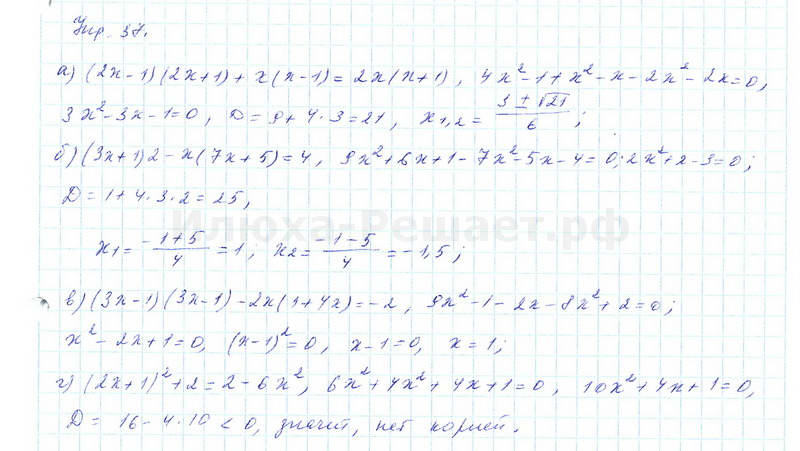 Упр. 37.
а) (2x-1)(2x+1)+x(x-1)=2x(x+1), 4x²-1+x²-x-2x²-2x=0,
3x²-3x-1=0, D=9+4·3=21, x₁,₂=(3±√21)/6;
б) (3x+1)2-x(7x+5)=4, 9x²+6x+1-7x²-5x-4=0; 2x²+x-3=0;
D=1+4·3·2=25,
Илюха-Решает.рф
x₁=(-1+5)/4=1, x₂=(-1-5)/4=-1,5;
в) (3x-1)(3x-1)-2x(1+4x)=-2, 9x²-1-2x-8x²+2=0;
x²-2x+1=0, (x-1)²=0, x-1=0, x=1;
г) (2x+1)²+2=2-6x², 6x²+4x²+4x+1=0, 10x²+4x+1=0,
D=16-4·10<0, значит, нет корней.